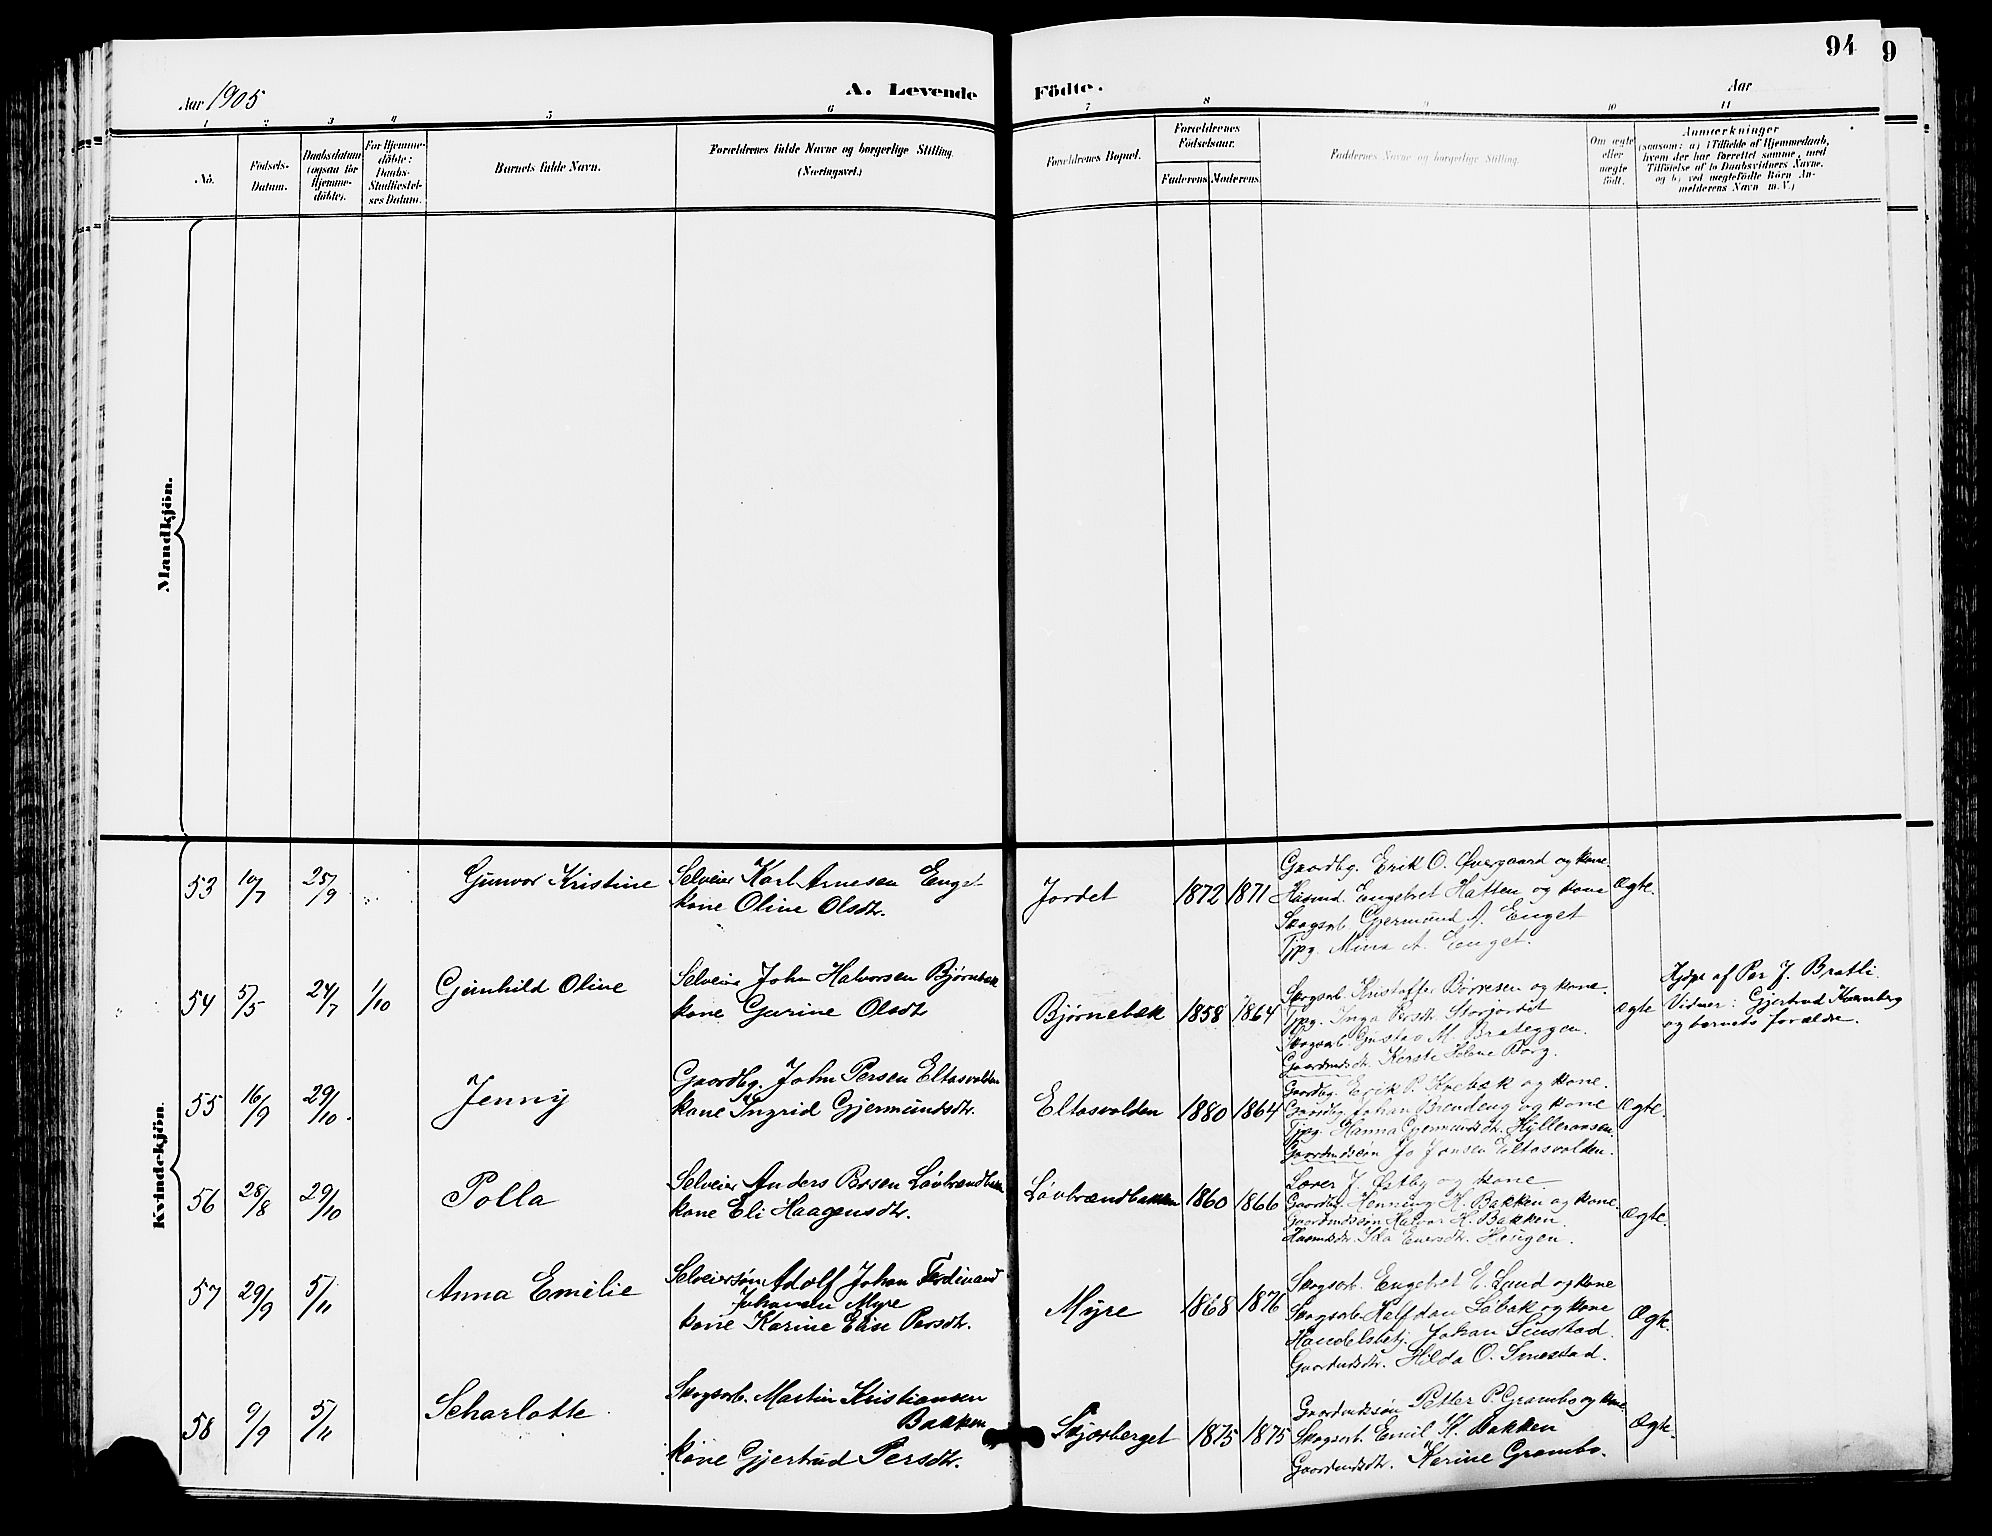 94
9
Aar 1905
A. Levende
Födte.
Aar
1 2 3 4 5 6 7 8 9 10 11
No.
Födsels-
Datum.
Daabsdatum
(ogsaa for
Hjemme-
döbte).
For Hjemme-
döbte:
Daabs-
Stadfæstel-
ses Datum.
Barnets fulde Navn.
Forældrenes fulde Navne og borgerlige Stilling.
(Næringsvei.)
Forældrenes Bopæl.
Forældrenes
Födselsaar.
Faderens Moderens
Faddernes Navne og borgerlige Stilling.
Om ægte
eller
uægte
födt.
Anmærkninger
(saasom: a) i Tilfælde af Hjemmedaab,
hvem der har forrettet samme, med
Tilföielse af to Daabsvidners Navne.
og b) ved uægtefödte Börn An-
melderens Navn m. V.)
Mandkjön.
Kvindekjön.
53 10/7 25/9 Gunvor Kristine
Selveier Karl Arnesen Enget
kone Oline Olsdtr.
Jordet 1872 1871
Gaardbg. Erik O. Øvergaard og kone.
Husmd. Engebret Hatten og kone
Skogsarb. Gjermund A. Enget
Tjpg. Mina A. Enget.
Ægte.
54 5/5 24/7 1/10 Gunhild Oline
Selveier John Halvorsen Bjørnebæk
kone Gurine Olsdt
Bjørnebæk 1858 1864
Skogsarb. Kristoffer Børresen og kone.
Tjpg. Inga Persdt. Storjordet
Skogsarb. Gustav M. Brateggen.
Gaardmdsdtr. Kerste Helene Borg.
ægte
Hjdpt af Per J. Bratli.
Vidner: Gjertrud Kværnberg
og barnets forældre.
55 16/9 29/10. Jenny
Gaardbg. John Persen Eltasvolden
kone Ingrid Gjermundsdtr.
Eltasvolden 1880 1864
Gaardbg. Erik P. Kvebæk og kone.
Gaardbg. Johan Brendeng og kone
Tjpg. Hanna Gjermundsdtr. Hylleraasen.
Gaardmdssøn Jo Jonsen Eltasvolden.
Ægte.
56 28/8 29/10 Polla
Selveier Anders Bosen Løvbrændbakken
kone Eli Haagensdtr.
Løvbrændbakken 1860 1866
Lærer J. Østby og kone
Gaardbg. Henning H. Bakken og kone.
Gaardmdssøn Halvor H. Bakken.
Husmdsdtr. Ida Enersdtr. Haugen.
Ægte.
57 29/9 5/11 Anna Emilie
Selveiersøn Adolf Johan Ferdinand
Johansen Myre
kone Karine Elise Persdtr.
Myre 1868 1876
Skogsarb. Engebret E. Lund og kone
Skogsarb. Halfdan Løbak og kone
Handelsbetj. Johan Smestad.
Gaardmdsdtr. Hilda O. Smestad.
Ægte.
58 9/9 5/11 Scharlotte
Skogsarb. Martin Kristiansen
Bakken
kone Gjertrud Persdtr.
Skjærberget 1875 1875
Gaardmdssøn Petter P. Grambo og kone
Skogsarb. Emil K. Bakken
Gaardmdsdtr. Karine Grambo.
Ægte.